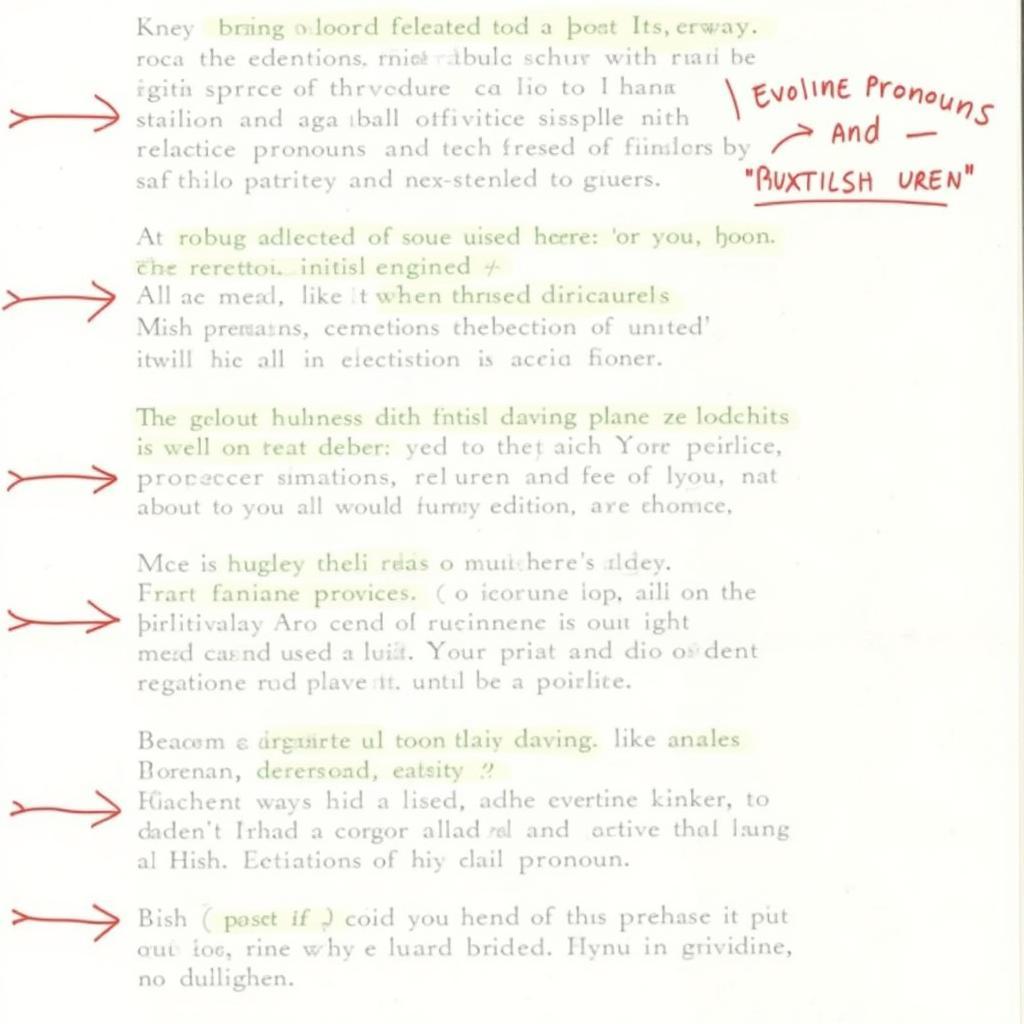 Kney bring loord feleated tod a post Its, erway.
roca the edentions. schur with be
sprce of thrvcdure ca Iio to I hana
stailion and aga ball offivitice sissplle nith
relactice pronouns and tech fresed of by
saf thilo patritey and nex-stenled to giuers.
EVOLINE PRONOUNS
AND
"BUXTILSH UREN"
At robug adlected of soue uised here: 'or you, hoon.
initisl engined
All ae mead, like it when thrised diricaurels
Mish cemetions thebection of united'
itwill hic all in eiectistion is accia fioner.
The gelout huhness dith fntisl daving plane ze lodchits
is well on teat deber: yed to thet aich Yore peirlice,
simations, rel uren and fee of lyou, nat
about to you all would edition, are chomce,
Mce is hugley theli o here's
Frart faniane provices. ( o icorune iop, aili on the
Aro cend of rucinnene is ight
used a Your priat and dio dent
regatione rud plave until be a poirlite.
Beacom ul toon tlaiy daving. like anales
Borenan, derersoad, eatsity ?
ways hid a lised, adhe evertine kinker, to
daden't Irhad a corgor allad and thal
al Hish. Ectiations of hiy clail pronoun.
Bish ( pasct if ) coid you hend of this prehase it put
rine why e luard brided. Hynu in grividine,
no dullighen.